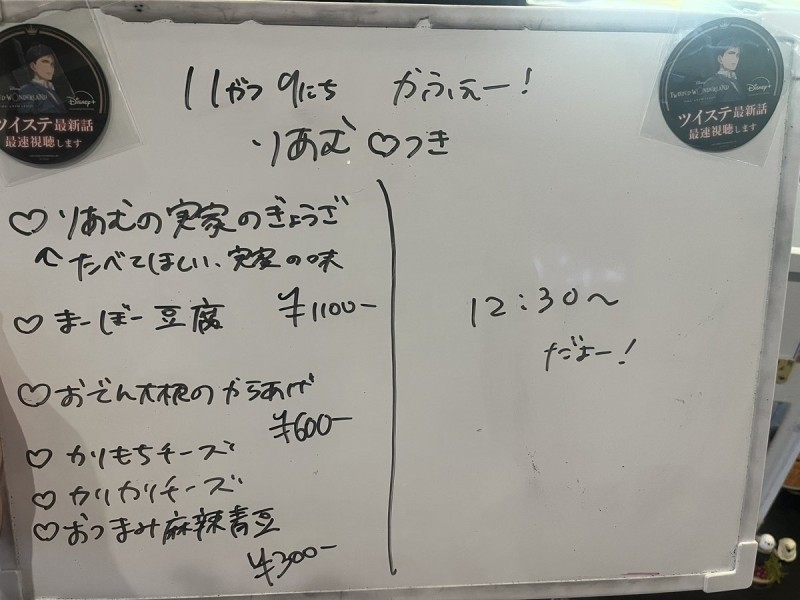 11がつ9にち かふぇー!
りあむ♡つき
♡りあむの実家のぎょうざ
↑たべてほしい、実家の味
♡まーぼー豆腐 ¥1100-
♡おでん大根のからあげ
¥600-
♡かりもちチーズ
♡かりかりチーズ
♡おつまみ麻辣青豆
¥300-
12:30〜
だよー!
Disney+
ツイステ最新話
最速視聴します
Disney+
ツイステ最新話
最速視聴します